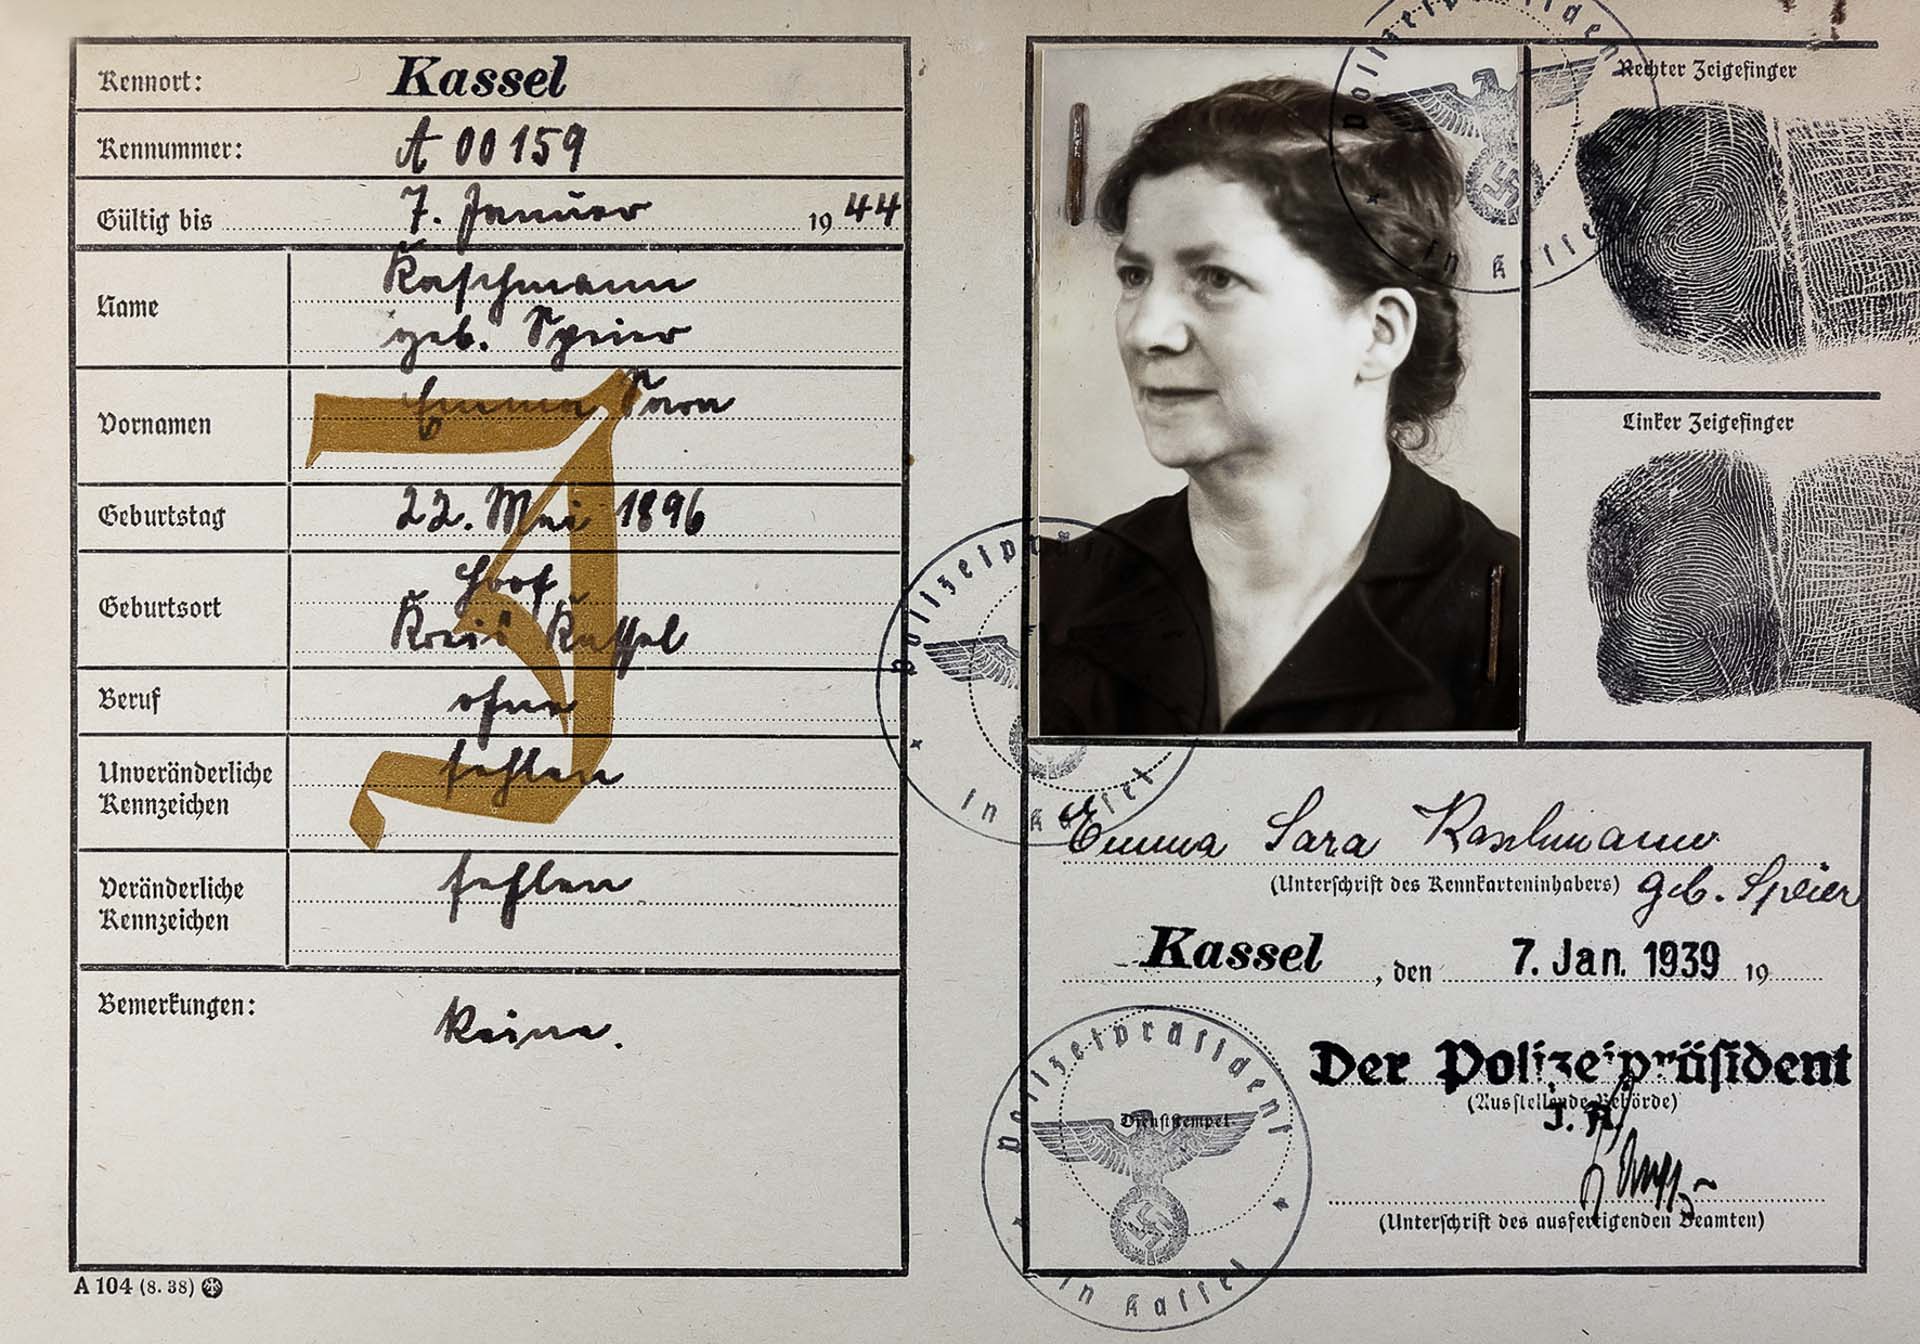 Kennort: Kassel
Kennummer: A 00159
Gültig bis 7. Januar 1944
Name Kaschmann
geb. Speier
Vornamen Emma Sara
J
Geburtstag 22. Mai 1896
Geburtsort Hoof
Kreis Kassel
Beruf ohne
Unveränderliche Kennzeichen fehlen
Veränderliche Kennzeichen fehlen
Bemerkungen: Keine.
A 104 (8. 38)
Rechter Zeigefinger
Linker Zeigefinger
Polizeipräsident
in Kassel
Polizeipräsident
in Kassel
Emma Sara Kaschmann
(Unterschrift des Kennkarteninhabers) geb. Speier
Kassel, den 7. Jan. 1939 19
Der Polizeipräsident
(Ausstellende Behörde)
J. A.
(Unterschrift des ausfertigenden Beamten)
Polizeipräsident
Dienststempel
in Kassel